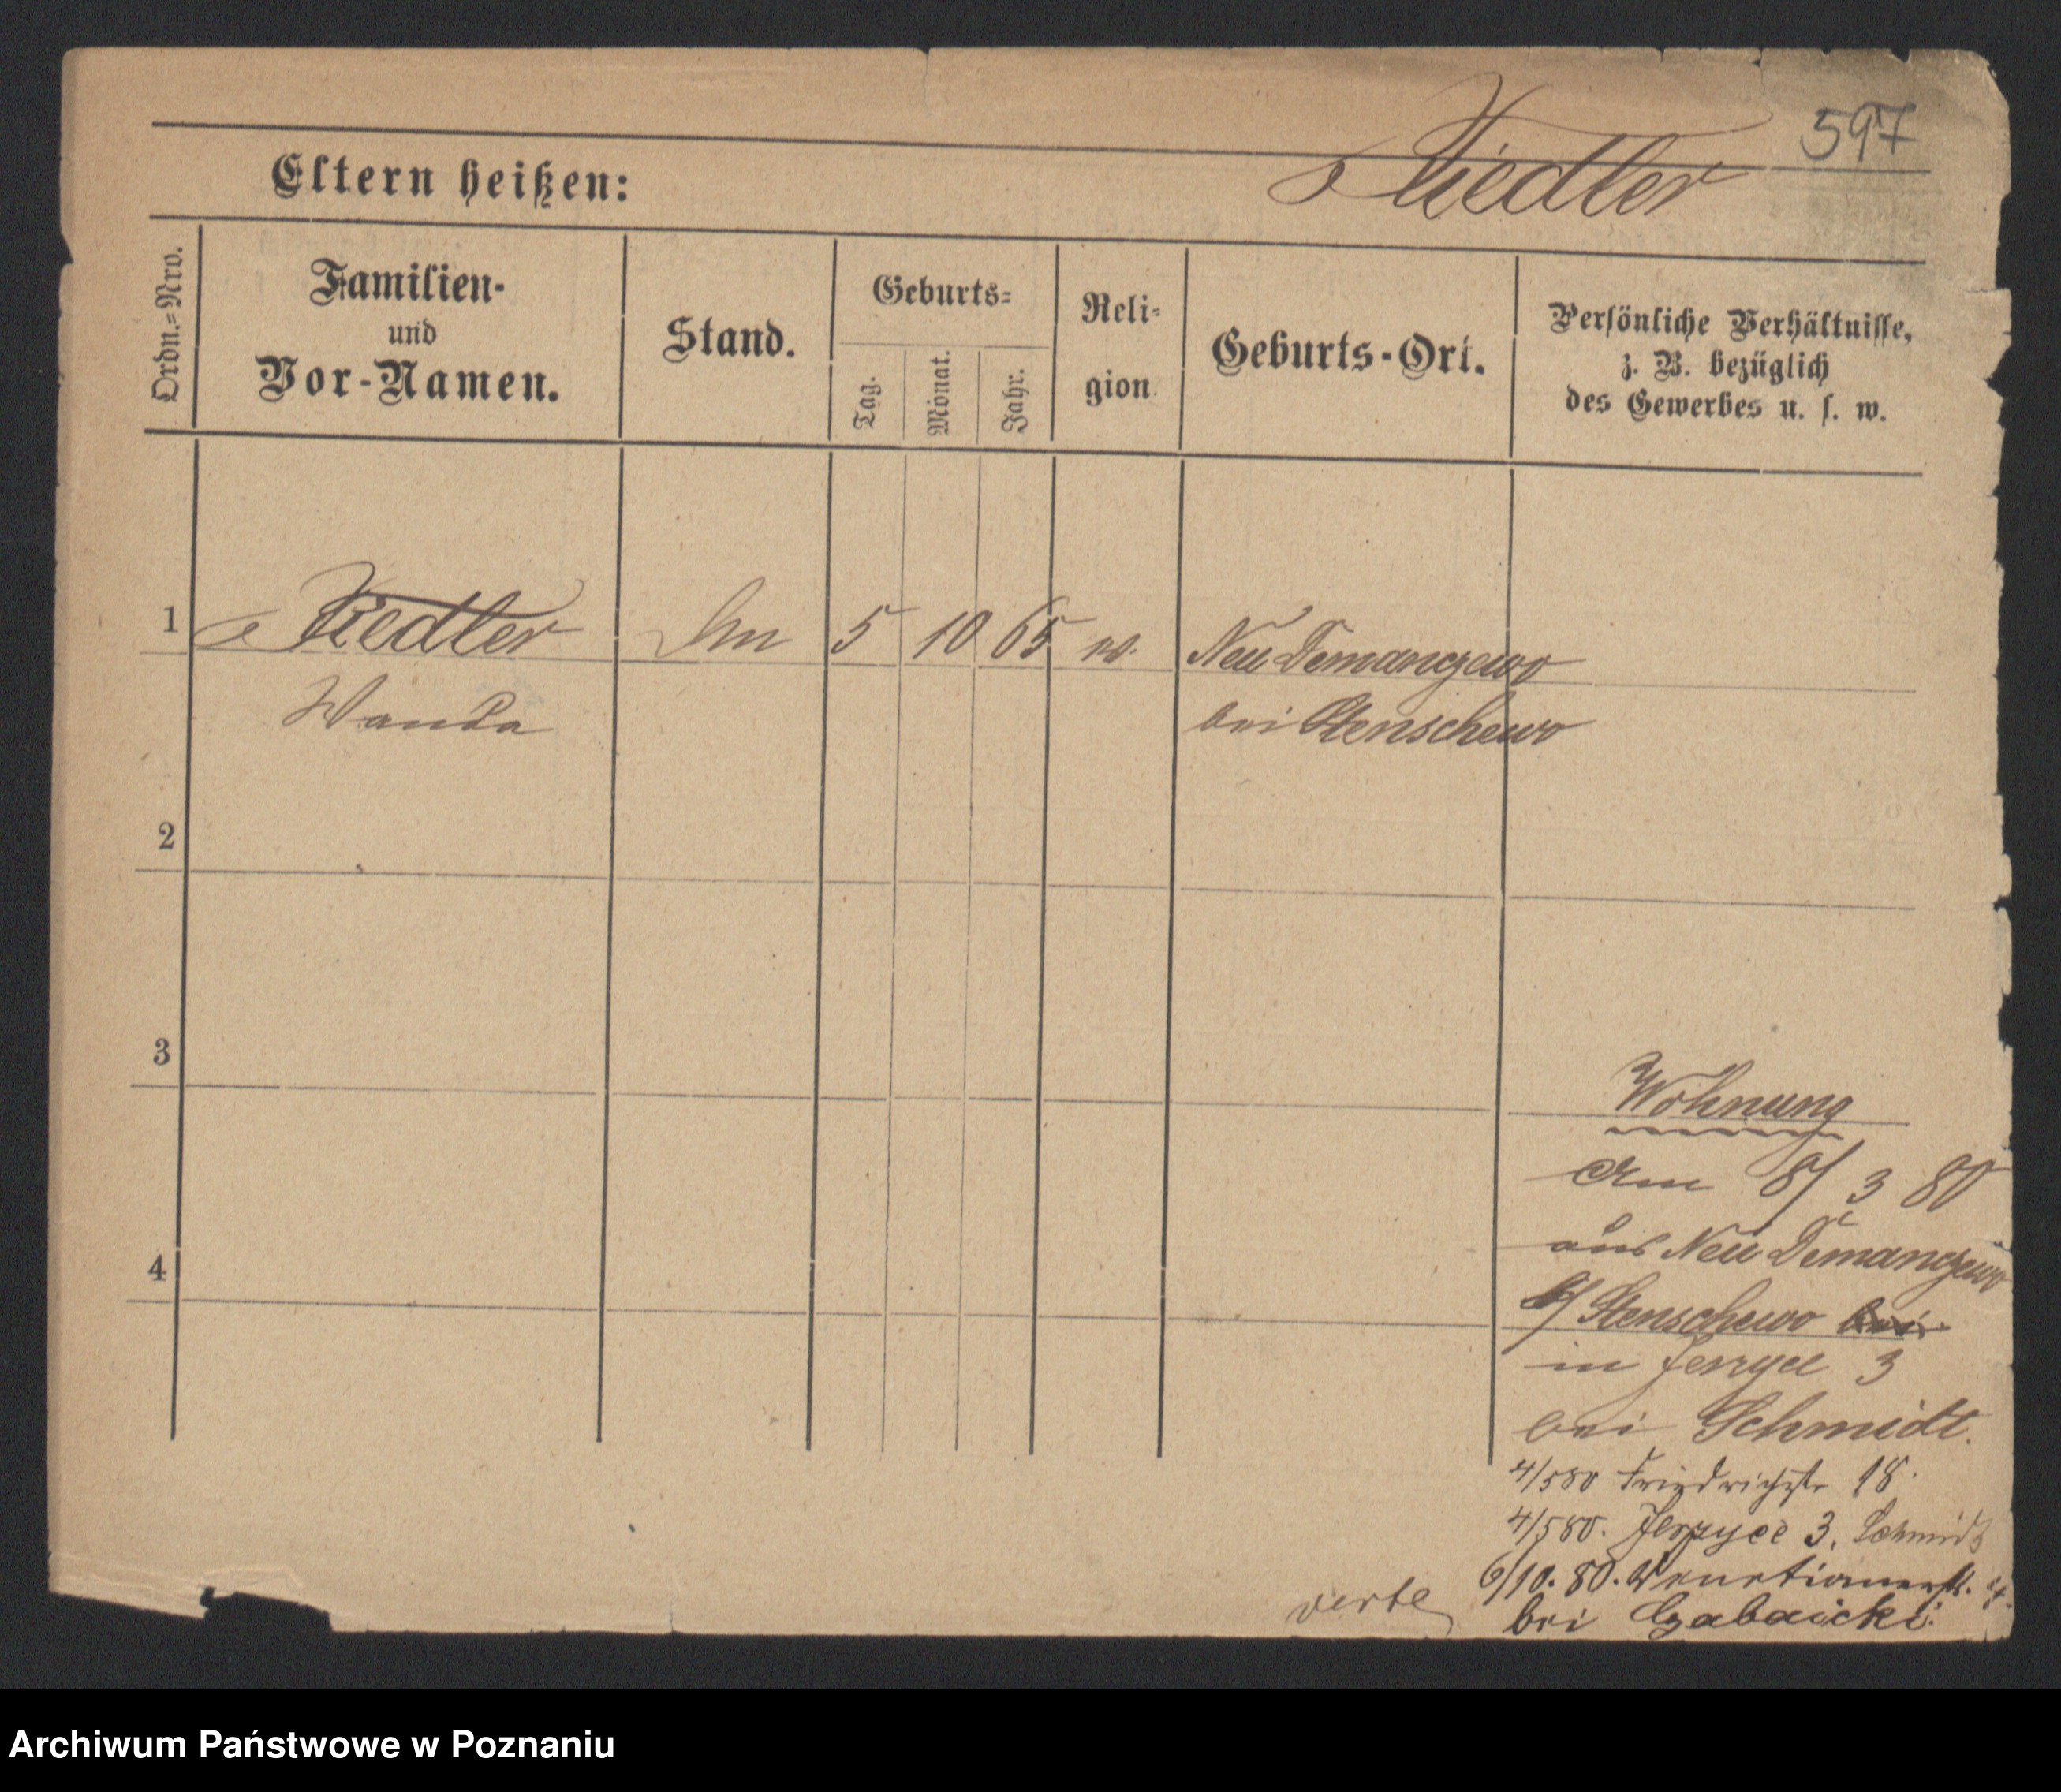 597
Eltern heißen: Fiedler
Ordn.=Nro.
Familien-
und
Vor-Namen.
Stand.
Geburts=
Tag.
Monat.
Jahr.
Reli=
gion
Geburts-Ort.
Persönliche Verhältnisse,
z. B. bezüglich
des Gewerbes u. s. w.
1 Fiedler 5 10 65 Neu Demanczewo
Wanda bei Stenschewo
2
3
4
Wohnung
Am 8/3 80
aus Neu Demanczewo
b/ Stenschewo bei
in Jerzyce 3
bei Schmidt.
4/5 80 Friedrichstr 18.
4/5 80. Jerzyce 3. Schmidt
6/10. 80. Venetianerstr.
bei
verte
Archiwum Państwowe w Poznaniu